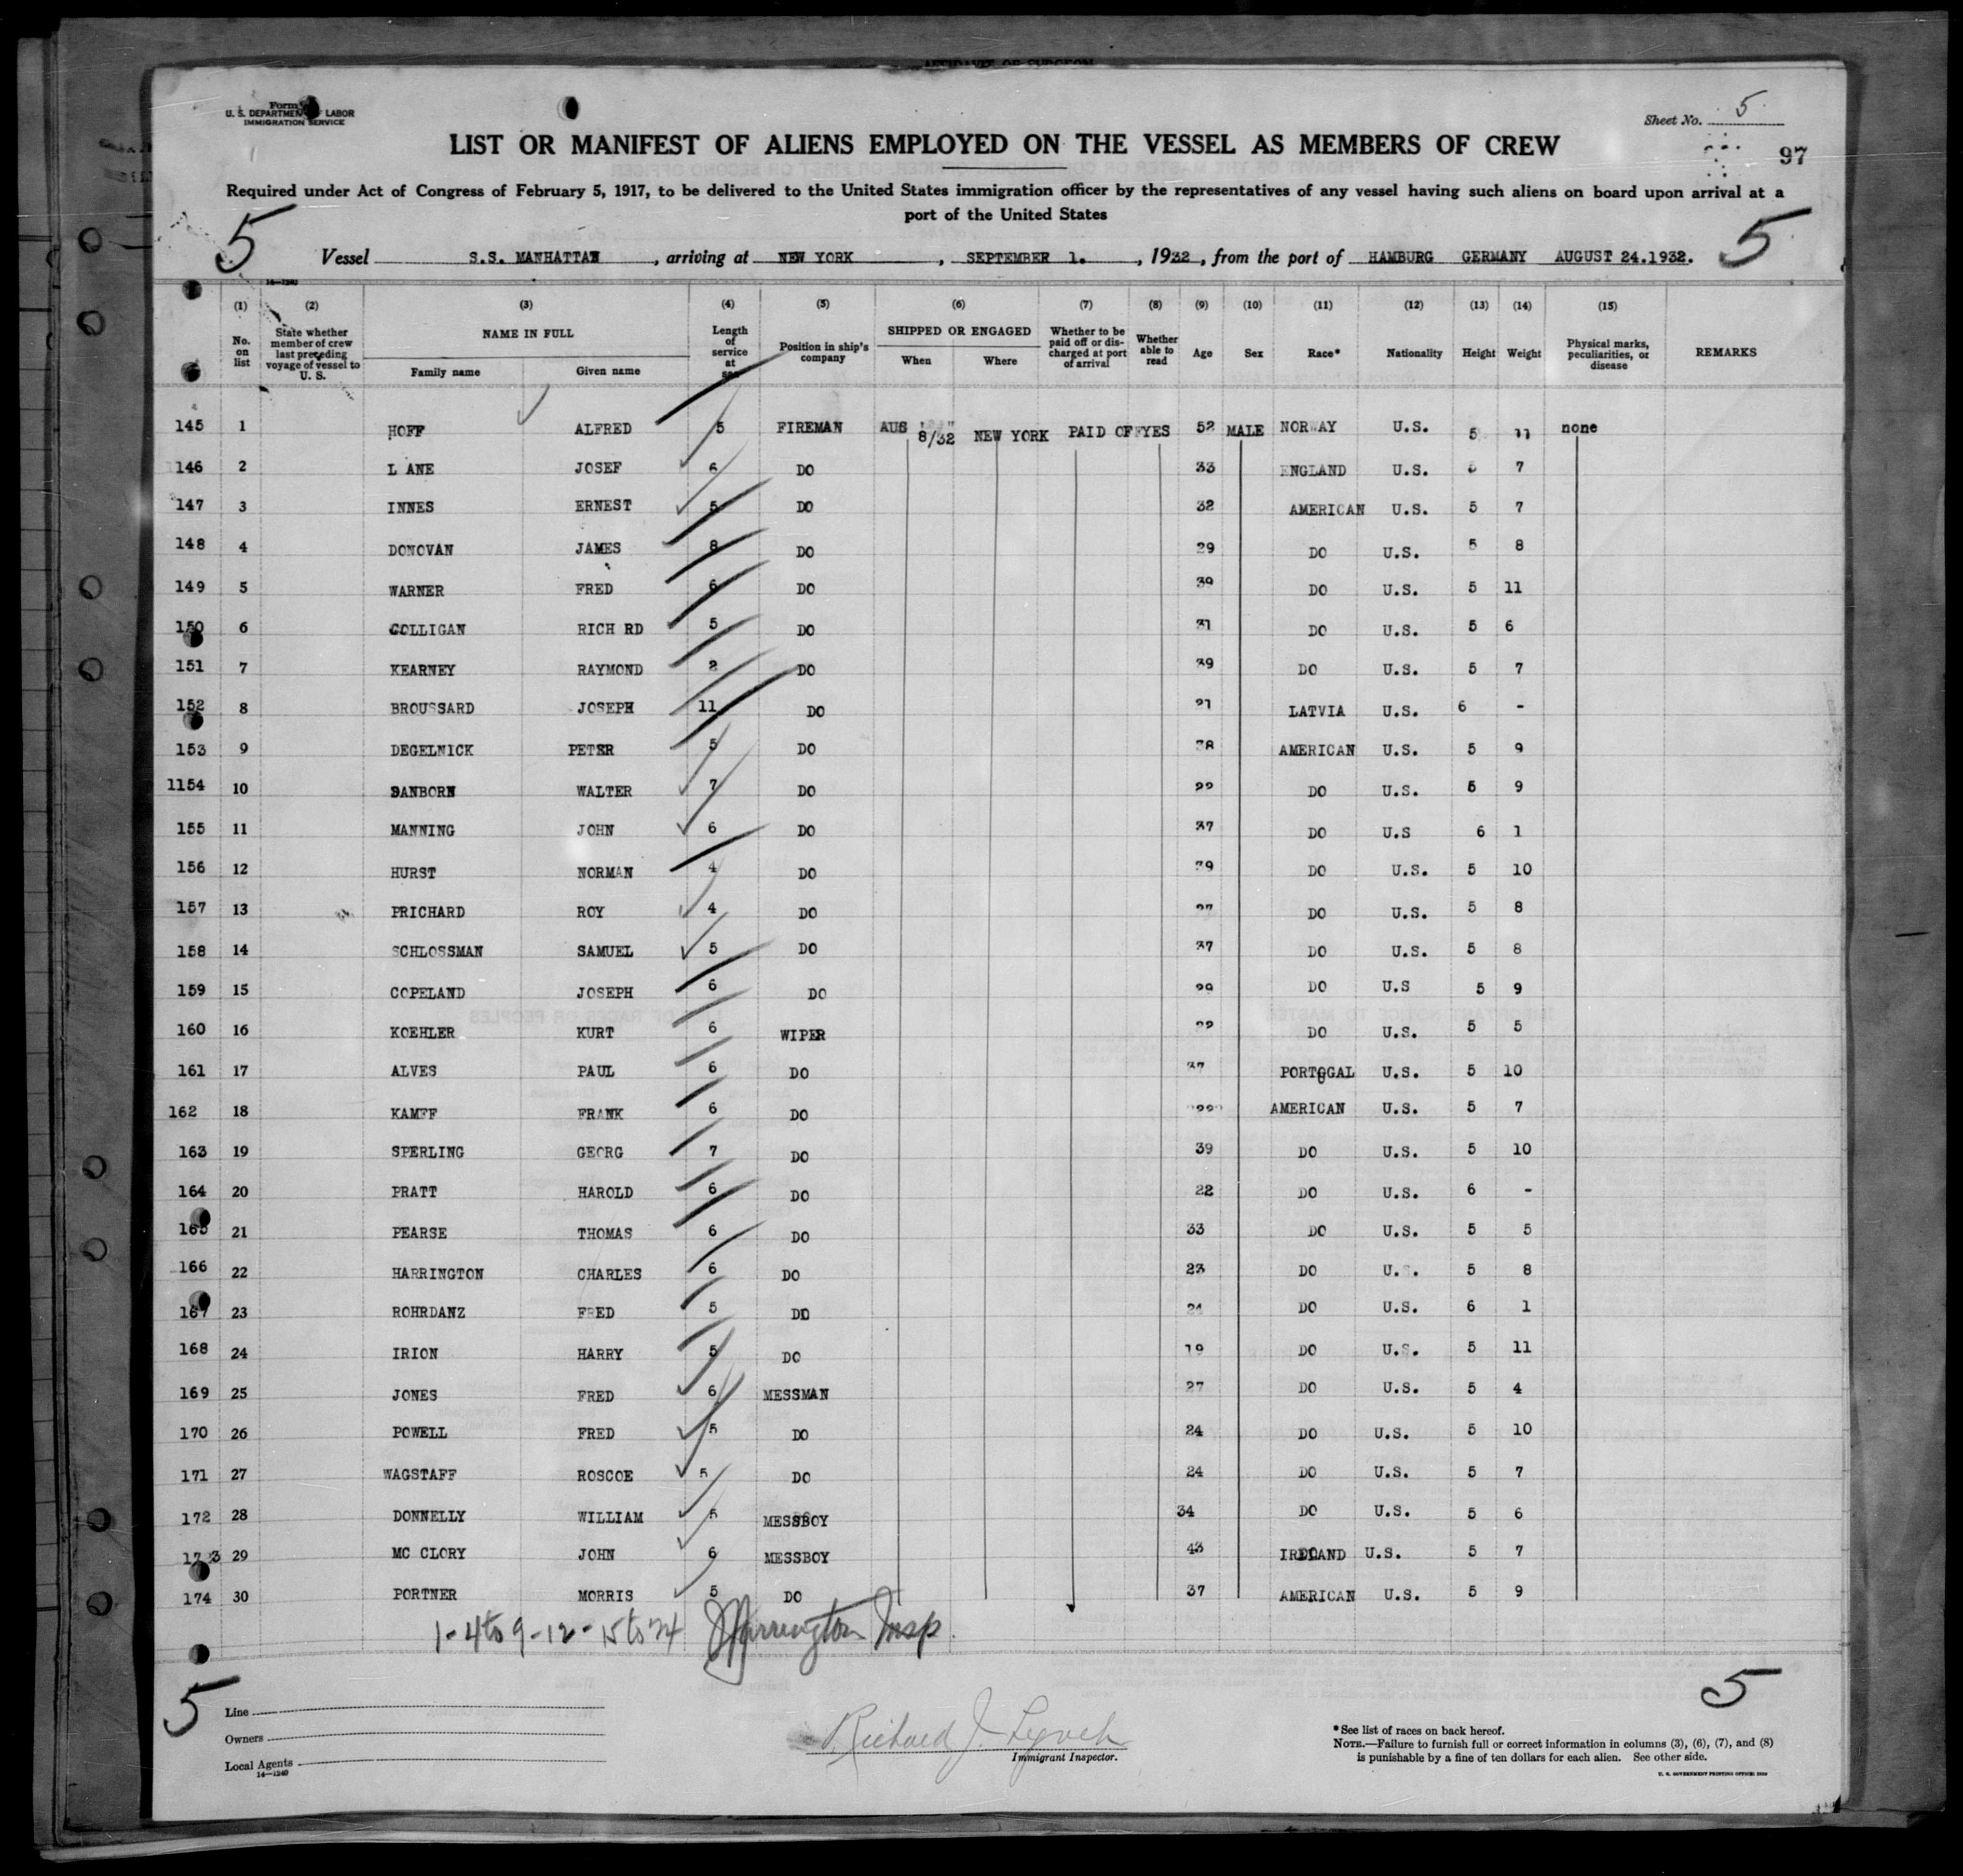 Form
U. S. DEPARTMENT LABOR
IMMIGRATION SERVICE
Sheet No. 5
97
LIST OR MANIFEST OF ALIENS EMPLOYED ON THE VESSEL AS MEMBERS OF CREW
Required under Act of Congress of February 5, 1917, to be delivered to the United States immigration officer by the representatives of any vessel having such aliens on board upon arrival at a
port of the United States
5 5
Vessel S.S. MANHATTAN , arriving at NEW YORK , SEPTEMBER 1. , 1932, from the port of HAMBURG GERMANY AUGUST 24.1932.
(1) (2) (3) (4) (5) (6) (7) (8) (9) (10) (11) (12) (13) (14) (15)
No. on list State whether member of crew last preceding voyage of vessel to U. S. NAME IN FULL Family name Given name Length of service at sea Position in ship's company SHIPPED OR ENGAGED When Where Whether to be paid off or discharged at port of arrival Whether able to read Age Sex Race* Nationality Height Weight Physical marks, peculiarities, or disease REMARKS
145 1 HOFF ALFRED 5 FIREMAN AUS 8/32 NEW YORK PAID OFF YES 52 MALE NORWAY U.S. 5 11 none
146 2 L ANE JOSEF 6 DO 33 ENGLAND U.S. 7
147 3 INNES ERNEST 5 DO 32 AMERICAN U.S. 5 7
148 4 DONOVAN JAMES 8 DO 29 DO U.S. 5 8
149 5 WARNER FRED 6 DO 39 DO U.S. 5 11
150 6 COLLIGAN RICH RD 5 DO 31 DO U.S. 5 6
151 7 KEARNEY RAYMOND 2 DO 39 DO U.S. 5 7
152 8 BROUSSARD JOSEPH 11 DO 21 LATVIA U.S. 6 -
153 9 DEGELNICK PETER 5 DO 38 AMERICAN U.S. 5 9
1154 10 SANBORN WALTER 7 DO 22 DO U.S. 5 9
155 11 MANNING JOHN 6 DO 37 DO U.S 6 1
156 12 HURST NORMAN 4 DO 39 DO U.S. 5 10
157 13 PRICHARD ROY 4 DO 27 DO U.S. 5 8
158 14 SCHLOSSMAN SAMUEL 5 DO 37 DO U.S. 5 8
159 15 COPELAND JOSEPH 6 DO 29 DO U.S 5 9
160 16 KOEHLER KURT 6 WIPER 22 DO U.S. 5 5
161 17 ALVES PAUL 6 DO 37 PORTUGAL U.S. 5 10
162 18 KAMFF FRANK 6 DO AMERICAN U.S. 5 7
163 19 SPERLING GEORG 7 DO 39 DO U.S. 5 10
164 20 PRATT HAROLD 6 DO 22 DO U.S. 6 -
165 21 PEARSE THOMAS 6 DO 33 DO U.S. 5 5
166 22 HARRINGTON CHARLES 6 DO 23 DO U. . 5 8
167 23 ROHRDANZ FRED 5 DO 24 DO U.S. 6 1
168 24 IRION HARRY 5 DO 19 DO U.S. 5 11
169 25 JONES FRED 6 MESSMAN 27 DO U.S. 5 4
170 26 POWELL FRED 5 DO 24 DO U.S. 5 10
171 27 WAGSTAFF ROSCOE 5 DO 24 DO U.S. 5 7
172 28 DONNELLY WILLIAM 5 MESSBOY 34 DO U.S. 5 6
173 29 MC CLORY JOHN 6 MESSBOY 43 IRELAND U.S. 5 7
174 30 PORTNER MORRIS 5 DO 37 AMERICAN U.S. 5 9
1-4 to 9-12-15 to 24 Harrington Insp.
5 5
Line
Owners
Local Agents
14—1240
Richard J. Lynch
Immigrant Inspector.
*See list of races on back hereof.
NOTE.—Failure to furnish full or correct information in columns (3), (6), (7), and (8)
is punishable by a fine of ten dollars for each alien. See other side.